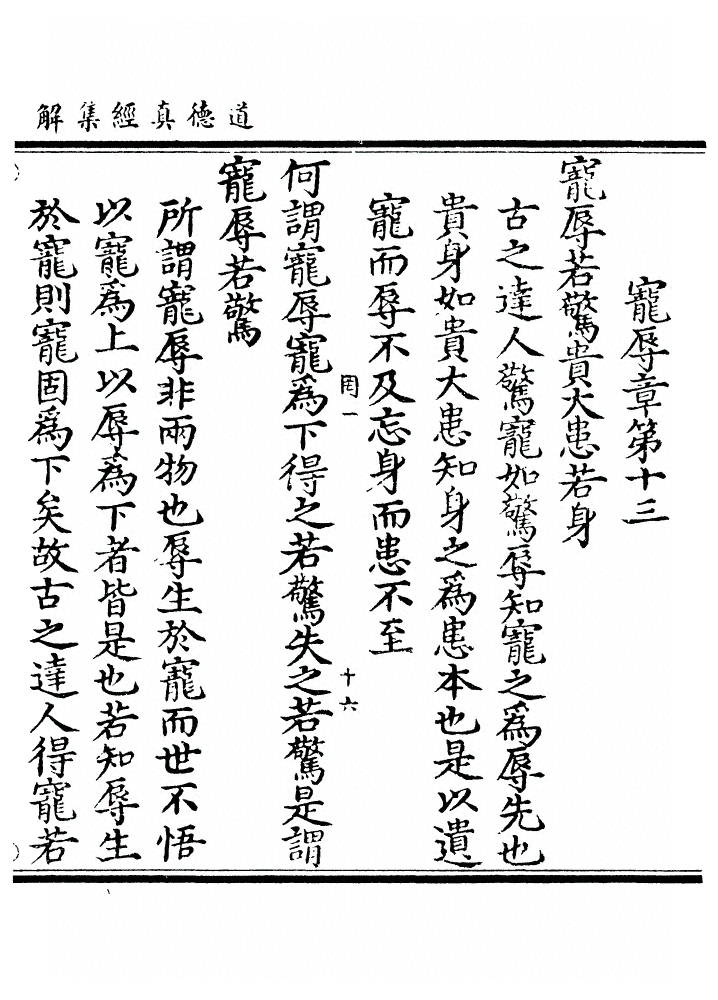 道德真經集解
寵辱章第十三
寵辱若驚貴大患若身
古之達人驚寵如驚辱知寵之爲辱先也
貴身如貴大患知身之爲患本也是以遺
寵而辱不及忘身而患不至
罔一
十六
何謂寵辱寵爲下得之若驚失之若驚是謂
寵辱若驚
所謂寵辱非兩物也辱生於寵而世不悟
以寵爲上以辱爲下者皆是也若知辱生
於寵則寵固爲下矣故古之達人得寵若